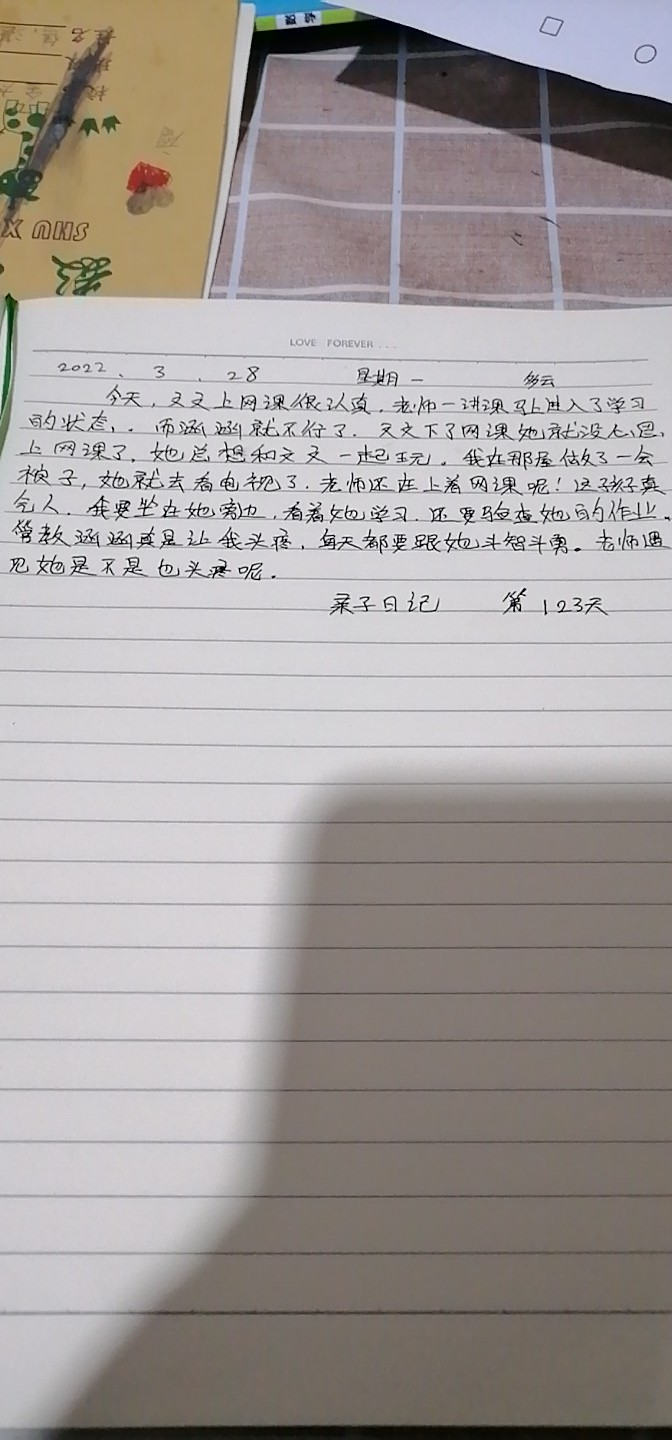 LOVE FOREVER...
2022. 3. 28 星期一 多云
今天,文文上网课很认真,老师一讲课马上进入了学习
的状态,. 而涵涵就不行了. 文文下了网课她就没心思.
上网课了,她总想和文文一起玩. 我在那屋做了一会
被子,她就去看电视了. 老师还在上着网课呢!这孩子真
气人. 我要坐在她旁边,看着她学习. 还要验查她的作业.
管教涵涵真是让我头疼,每天都要跟她斗智斗勇。老师遇
见她是不是也头疼呢.
亲子日记 第123天
SHU X
数
姓名